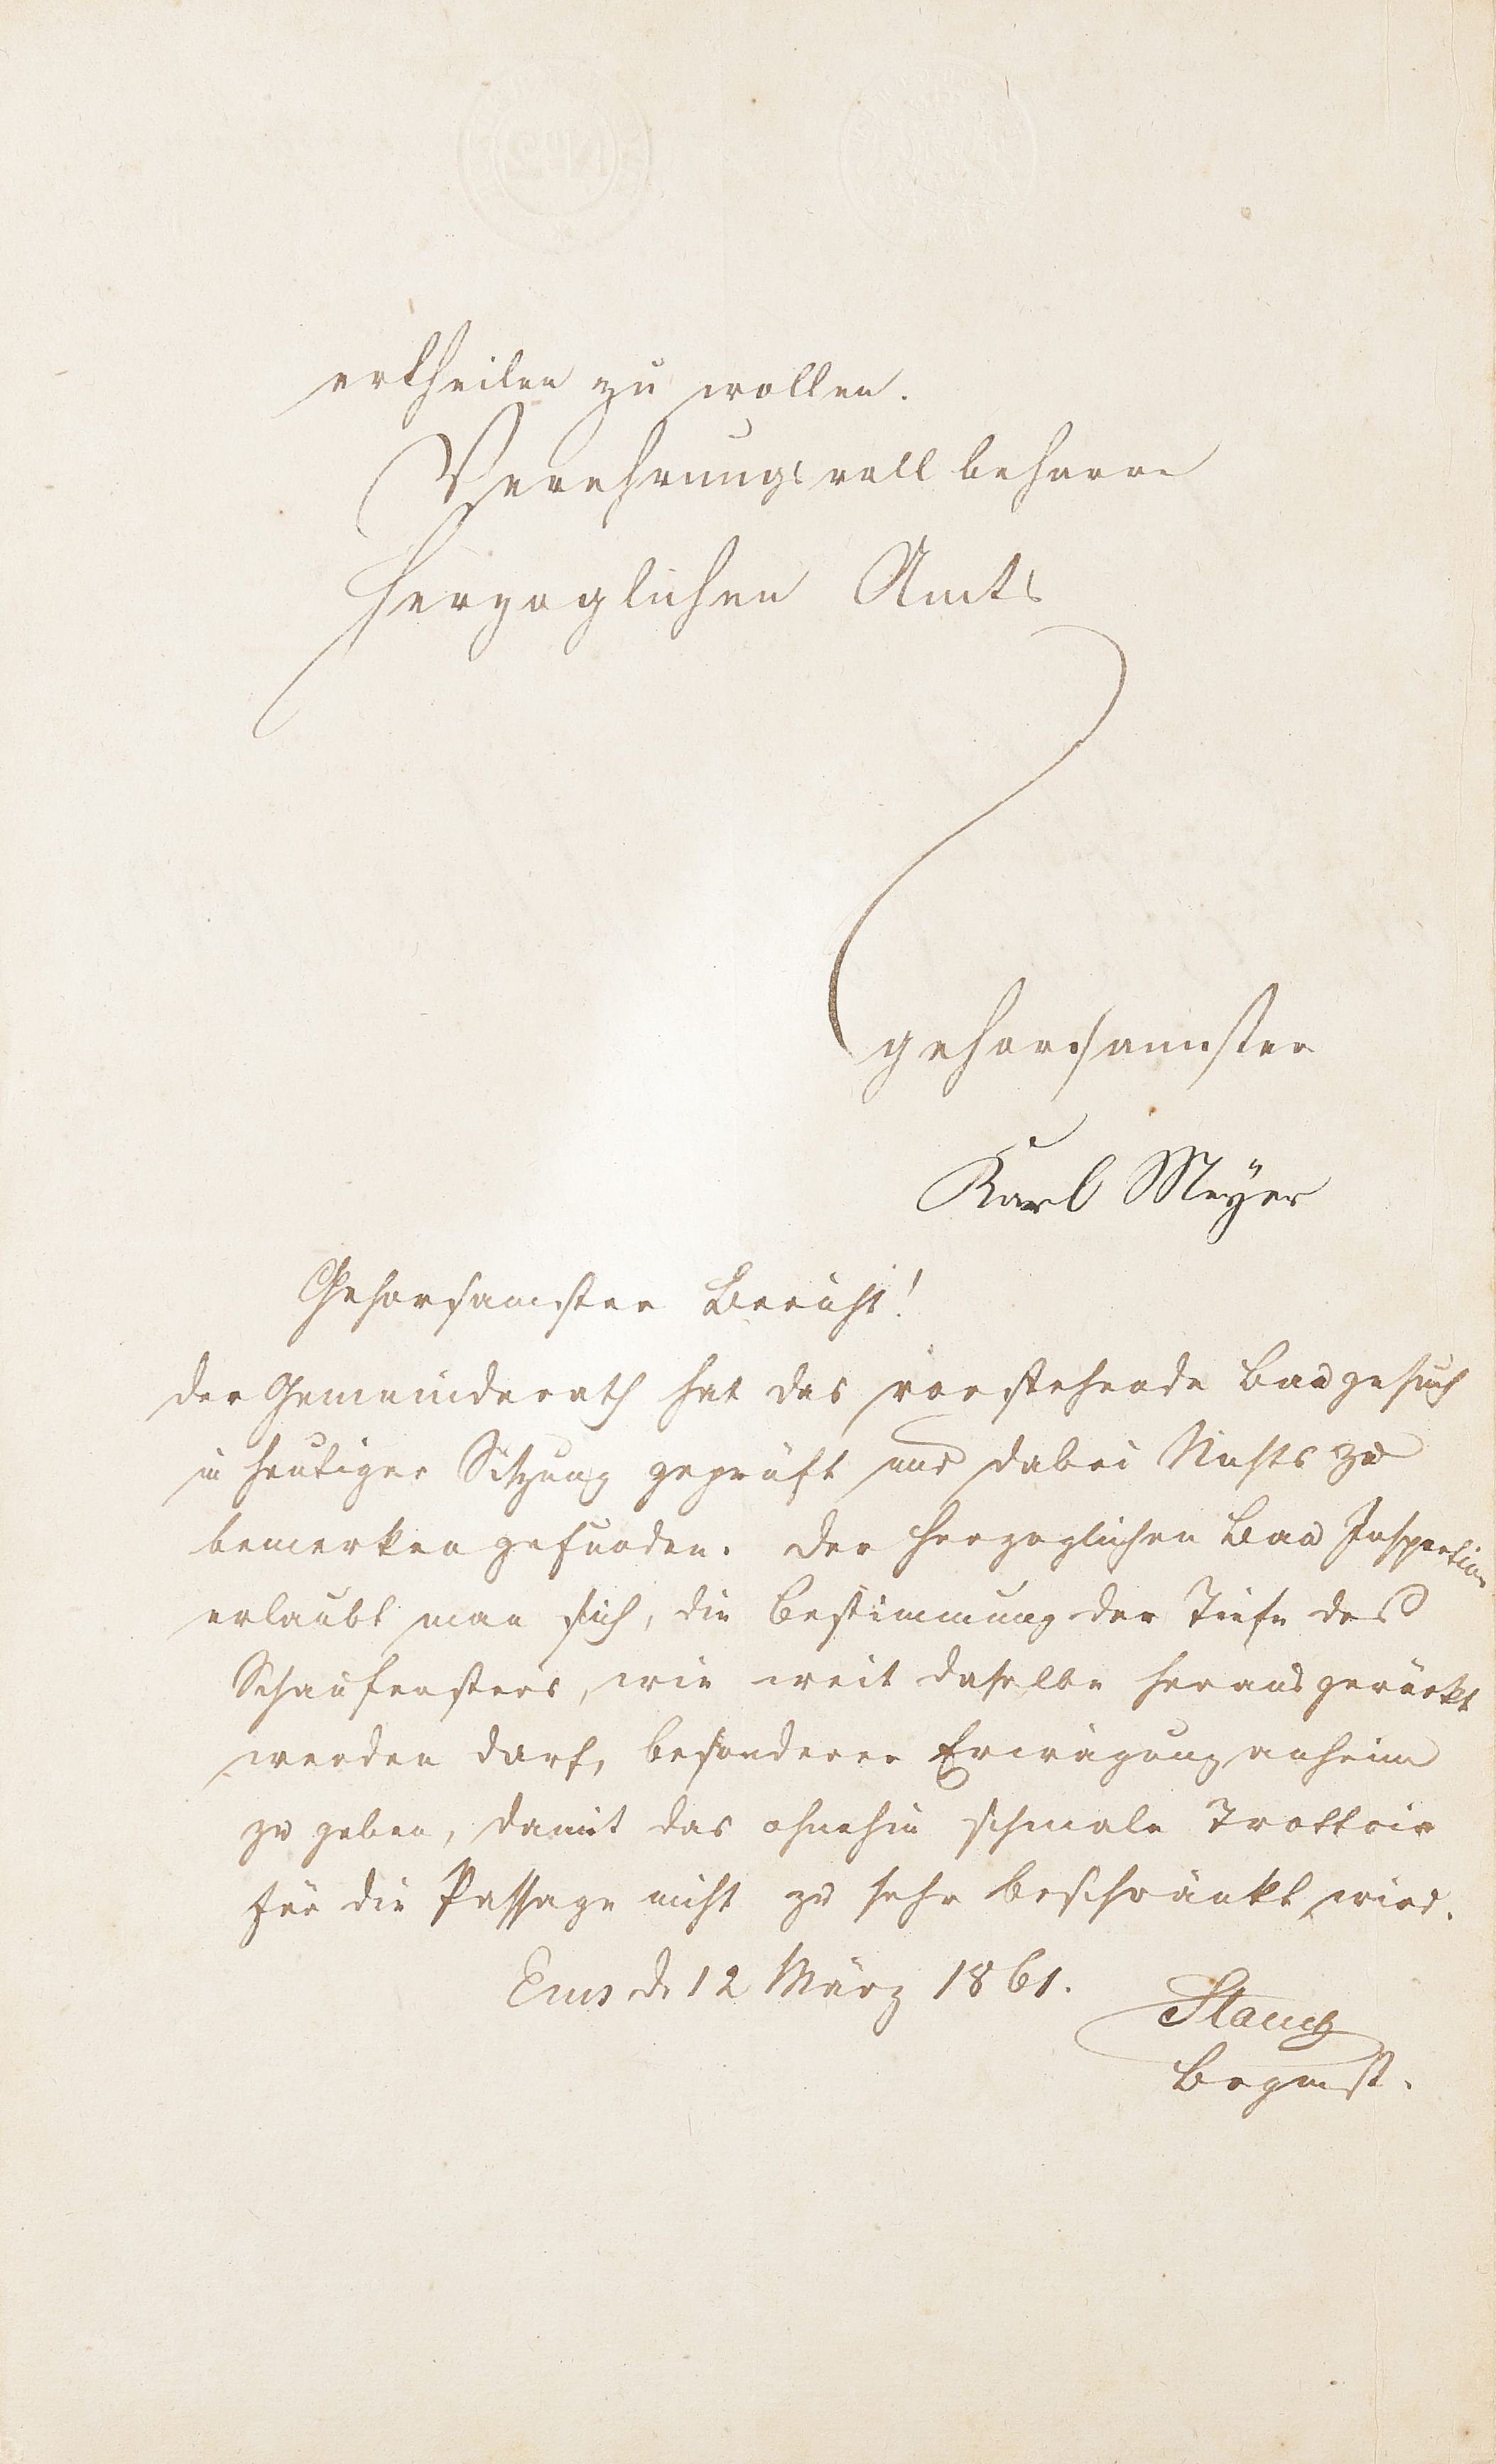 ertheilen zu wollen.
Verehrungsvoll beharre
Herzoglichen Amts
gehorsamster
Karl Meÿer
Gehorsamster Bericht!
Der Gemeinderath hat das vorstehende Baugesuch
in heutiger Sitzung geprüft und dabei Nichts zu
bemerken gefunden. Der Herzoglichen Bau Inspection
erlaubt man sich, die Bestimmung der Tiefe des
Schaufensters, wie weit dasselbe herausgerückt
werden darf, besonderer Erwägung anheim
zu geben, damit das ohnehin schmale Trottoir
für die Passage nicht zu sehr beschränkt wird.
Ems d. 12 März 1861.
Brgmst.